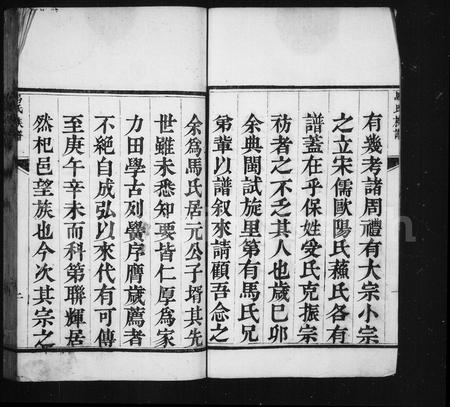 有幾考諸周禮有大宗小宗
之立宋儒歐陽氏蘓氏各有
譜蓋在乎保姓受氏克振宗
祊者之不乏其人也歲巳卯
余典閩試旋里第有馬氏兄
弟輩以譜叙來請顧吾念之
余為馬氏居元公子壻其先
世雖未悉知要皆仁厚為家
力田學古列黌序膺歲薦者
不絕自成弘以來代有可傳
至庚午辛未而科第聯輝居
然杞邑望族也今次其宗之
馬氏族譜
二